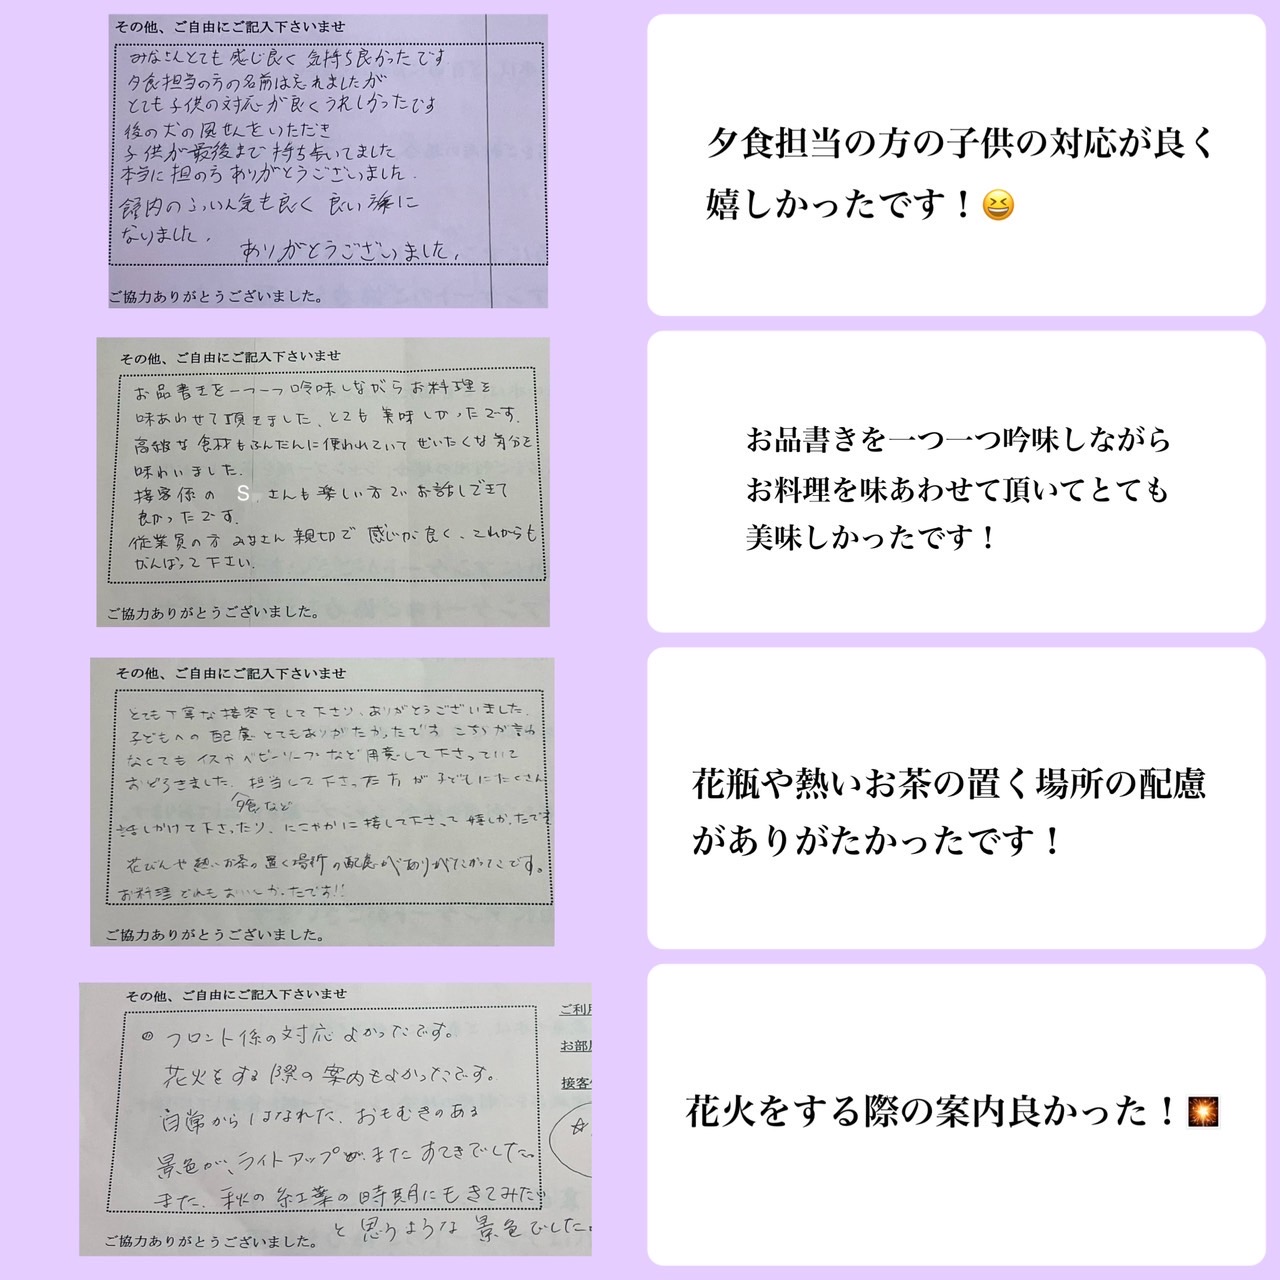 その他、ご自由にご記入下さいませ
みなさんとても感じ良く気持ち良かったです
夕食担当の方の名前は忘れましたが
とても子供の対応が良くうれしかったです
後の犬の風せんをいただき
子供が最後まで持ち歩いてました
本当に担の方ありがとうございました.
館内のふんい気も良く 良い旅に
なりました.
ありがとうございました.
ご協力ありがとうございました。
夕食担当の方の子供の対応が良く
嬉しかったです！😆
その他、ご自由にご記入下さいませ
お品書きを一つ一つ吟味しながらお料理を
味あわせて頂きました、とても美味しかったです.
高級な食材もふんだんに使われていてぜいたくな気分を
味わいました.
接客係の S さんも楽しい方でお話しできて
良かったです.
従業員の方みなさん親切で感じが良く、これからも
がんばって下さい.
ご協力ありがとうございました。
お品書きを一つ一つ吟味しながら
お料理を味あわせて頂いてとても
美味しかったです！
その他、ご自由にご記入下さいませ
とても丁寧な接客をして下さり、ありがとうございました.
子どもへの配慮とてもありがたかったです こちらが言わ
なくてもイスやベビーソープなど用意して下さっていて
おどろきました. 担当して下さった方が子どもにたくさん
夕食など
話しかけて下さったり、にこやかに接して下さって嬉しかったです
花びんや熱いお茶の置く場所の配慮がありがたかったです。
お料理どれもおいしかったです!!
ご協力ありがとうございました。
花瓶や熱いお茶の置く場所の配慮
がありがたかったです！
その他、ご自由にご記入下さいませ
フロント係の対応よかったです。
花火をする際の案内もよかったです。
日常からはなれた、おもむきのある
景色が、ライトアップが、またすてきでした。
また、秋の紅葉の時期にもきてみたい
と思うような景色でした。
ご協力ありがとうございました。
ご利用
お部屋
接客
花火をする際の案内良かった！💥